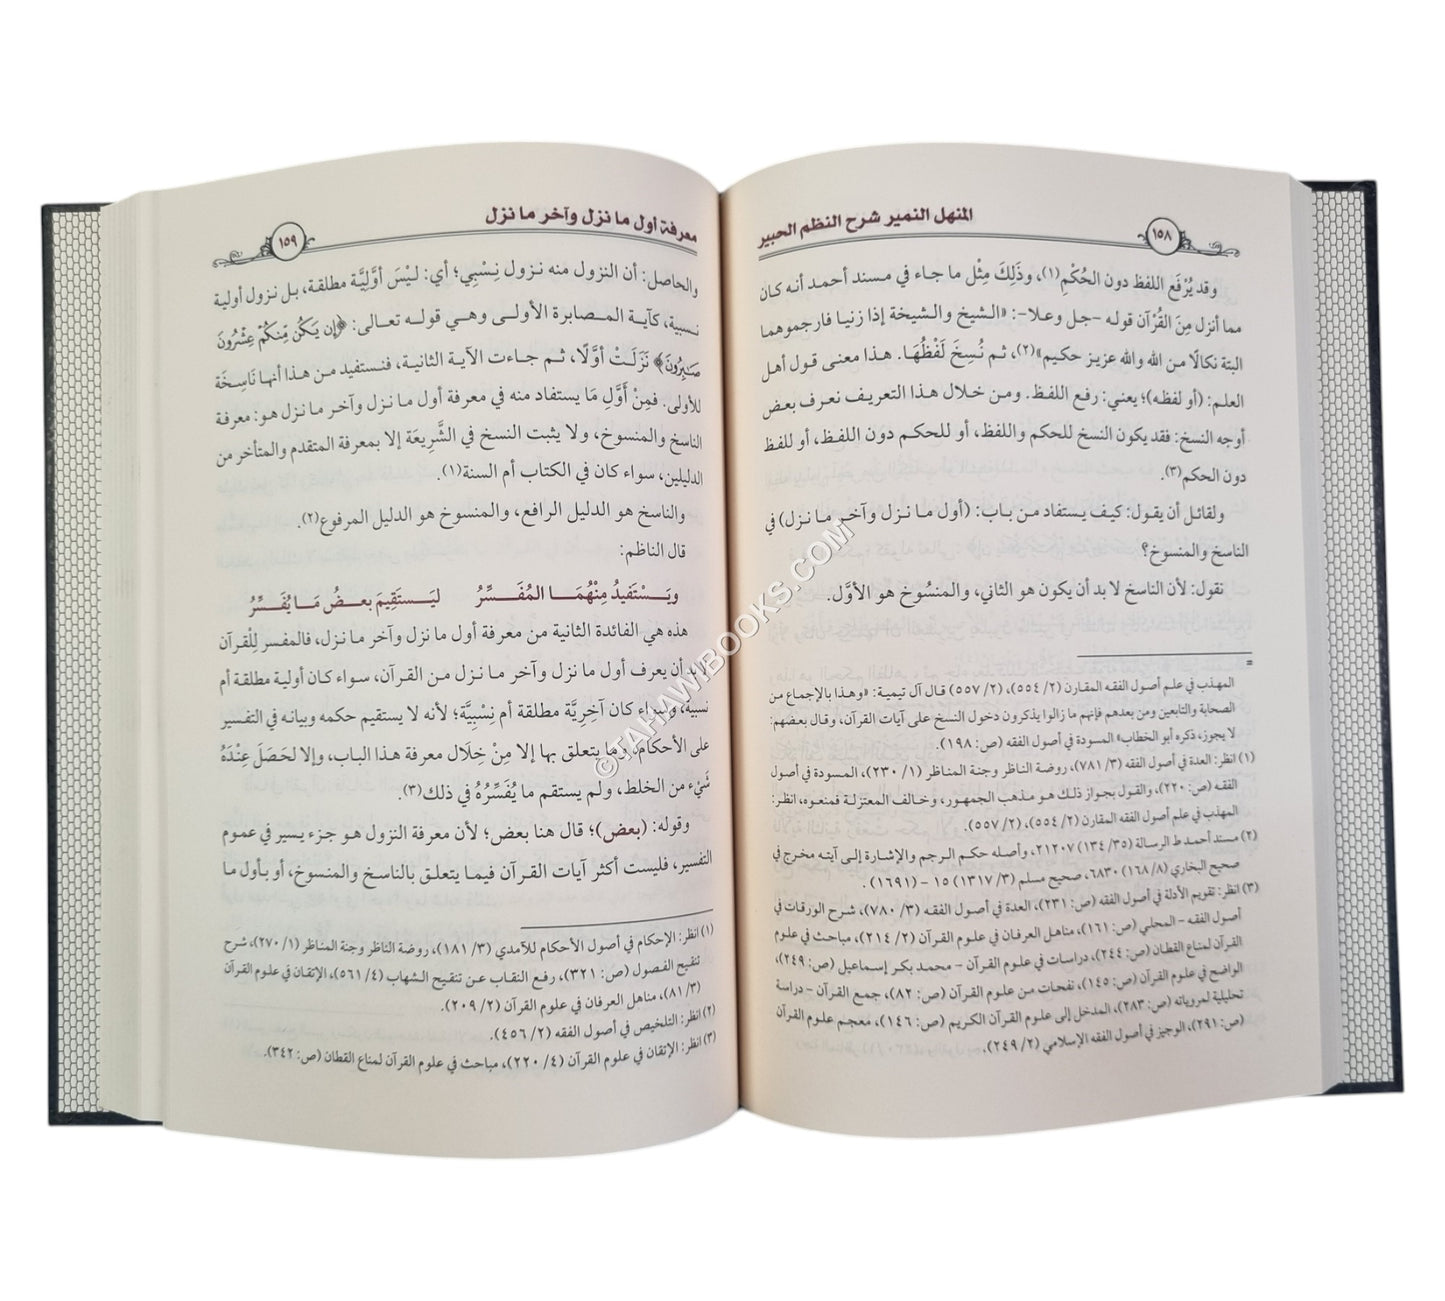 ١٥٨
المنهل النمير شرح النظم الحبير
وقد يُرْفَع اللفظ دون الحُكْمِ(١)، وذَلِكَ مِثْل ما جاء في مسند أحمد أنه كان
مما أنزل مِنَ القُرْآن قوله -جل وعلا-: «الشيخ والشيخة إذا زنيا فارجموهما
البتة نكالًا من الله والله عزيز حكيم»(٢)، ثم نُسِخَ لَفْظُهَا. هذا معنى قول أهل
العلم: (أو لفظه)؛ يعني: رفع اللفظ. ومن خلال هذا التعريف نعرف بعض
أوجه النسخ: فقد يكون النسخ للحكم واللفظ، أو للحكم دون اللفظ، أو للفظ
دون الحكم(٣).
ولقائل أن يقول: كيف يستفاد من باب: (أول ما نزل وآخر ما نزل) في
الناسخ والمنسوخ؟
نقول: لأن الناسخ لا بد أن يكون هو الثاني، والمنسُوخ هو الأوَّل.
=
المهذب في علم أصول الفقه المقارن (٢/ ٥٥٤)، (٢/ ٥٥٧) قال آل تيمية: «وهذا بالإجماع من
الصحابة والتابعين ومن بعدهم فإنهم ما زالوا يذكرون دخول النسخ على آيات القرآن، وقال بعضهم:
لا يجوز، ذكره أبو الخطاب» المسودة في أصول الفقه (ص: ١٩٨).
(١) انظر: العدة في أصول الفقه (٣/ ٧٨١)، روضة الناظر وجنة المناظر (١/ ٢٣٠)، المسودة في أصول
الفقه (ص: ٢٢٠)، والقول بجواز ذلك هو مذهب الجمهور، وخالف المعتزلة فمنعوه، انظر:
المهذب في علم أصول الفقه المقارن (٢/ ٥٥٤)، (٢/ ٥٥٧).
(٢) مسند أحمد ط الرسالة (٣٥/ ١٣٤) ٢١٢٠٧، وأصله حكم الرجم والإشارة إلى آيته مخرج في
صحيح البخاري (٨/ ١٦٨) ٦٨٣٠، صحيح مسلم (٣/ ١٣١٧) ١٥ - (١٦٩١).
(٣) انظر: تقويم الأدلة في أصول الفقه (ص: ٢٣١)، العدة في أصول الفقه (٣/ ٧٨٠)، شرح الورقات في
أصول الفقه - المحلي (ص: ١٦١)، مناهل العرفان في علوم القرآن (٢/ ٢١٤)، مباحث في علوم
القرآن لمناع القطان (ص: ٢٤٤)، دراسات في علوم القرآن - محمد بكر إسماعيل (ص: ٢٤٩)،
الواضح في علوم القرآن (ص: ١٤٥)، نفحات من علوم القرآن (ص: ٨٢)، جمع القرآن - دراسة
تحليلية لمروياته (ص: ٢٨٣)، المدخل إلى علوم القرآن الكريم (ص: ١٤٦)، معجم علوم القرآن
(ص: ٢٩١)، الوجيز في أصول الفقه الإسلامي (٢/ ٢٤٩).
معرفة أول ما نزل وآخر ما نزل
١٥٩
والحاصل: أن النزول منه نزول نِسْبِي؛ أي: لَيْسَ أوَّليَّة مطلقة، بل نزول أولية
نسبية، كآية المصابرة الأولى وهي قوله تعالى: ﴿إِن يَكُن مِّنكُمْ عِشْرُونَ
صَـٰبِرُونَ﴾ نَزَلَتْ أوَّلًا، ثم جاءت الآية الثانية، فنستفيد من هذا أنها نَاسِخَة
للأولى. فمِنْ أَوَّلِ مَا يستفاد منه في معرفة أول ما نزل وآخر ما نزل هو: معرفة
الناسخ والمنسوخ، ولا يثبت النسخ في الشَّرِيعَة إلا بمعرفة المتقدم والمتأخر من
الدليلين، سواء كان في الكتاب أم السنة(١).
والناسخ هو الدليل الرافع، والمنسوخ هو الدليل المرفوع(٢).
قال الناظم:
ويَسْتَفيدُ مِنْهُمَا المُفَسِّرُ ليَستَقِيمَ بعضُ مَا يُفَسِّرُ
هذه هي الفائدة الثانية من معرفة أول ما نزل وآخر ما نزل، فالمفسر لِلْقرآن
لابد أن يعرف أول ما نزل وآخر ما نزل من القرآن، سواء كان أولية مطلقة أم
نسبية، وسواء كان آخِريَّة مطلقة أم نِسْبِيَّة؛ لأنه لا يستقيم حكمه وبيانه في التفسير
على الأحكام، وما يتعلق بها إلا مِنْ خِلَال معرفة هذا الباب، وإلا لحَصَلَ عِنْدَهُ
شَيْء من الخلط، ولم يستقم ما يُفَسِّرُهُ في ذلك(٣).
وقوله: (بعض)؛ قال هنا بعض؛ لأن معرفة النزول هو جزء يسير في عموم
التفسير، فليست أكثر آيات القرآن فيما يتعلق بالناسخ والمنسوخ، أو بأول ما
(١) انظر: الإحكام في أصول الأحكام للآمدي (٣/ ١٨١)، روضة الناظر وجنة المناظر (١/ ٢٧٠)، شرح
تنقيح الفصول (ص: ٣٢١)، رفع النقاب عن تنقيح الشهاب (٤/ ٥٦١)، الإتقان في علوم القرآن
(٣/ ٨١)، مناهل العرفان في علوم القرآن (٢/ ٢٠٩).
(٢) انظر: التلخيص في أصول الفقه (٢/ ٤٥٦).
(٣) انظر: الإتقان في علوم القرآن (٤/ ٢٢٠)، مباحث في علوم القرآن لمناع القطان (ص: ٣٤٢).
© TAHAWIBOOKS.COM